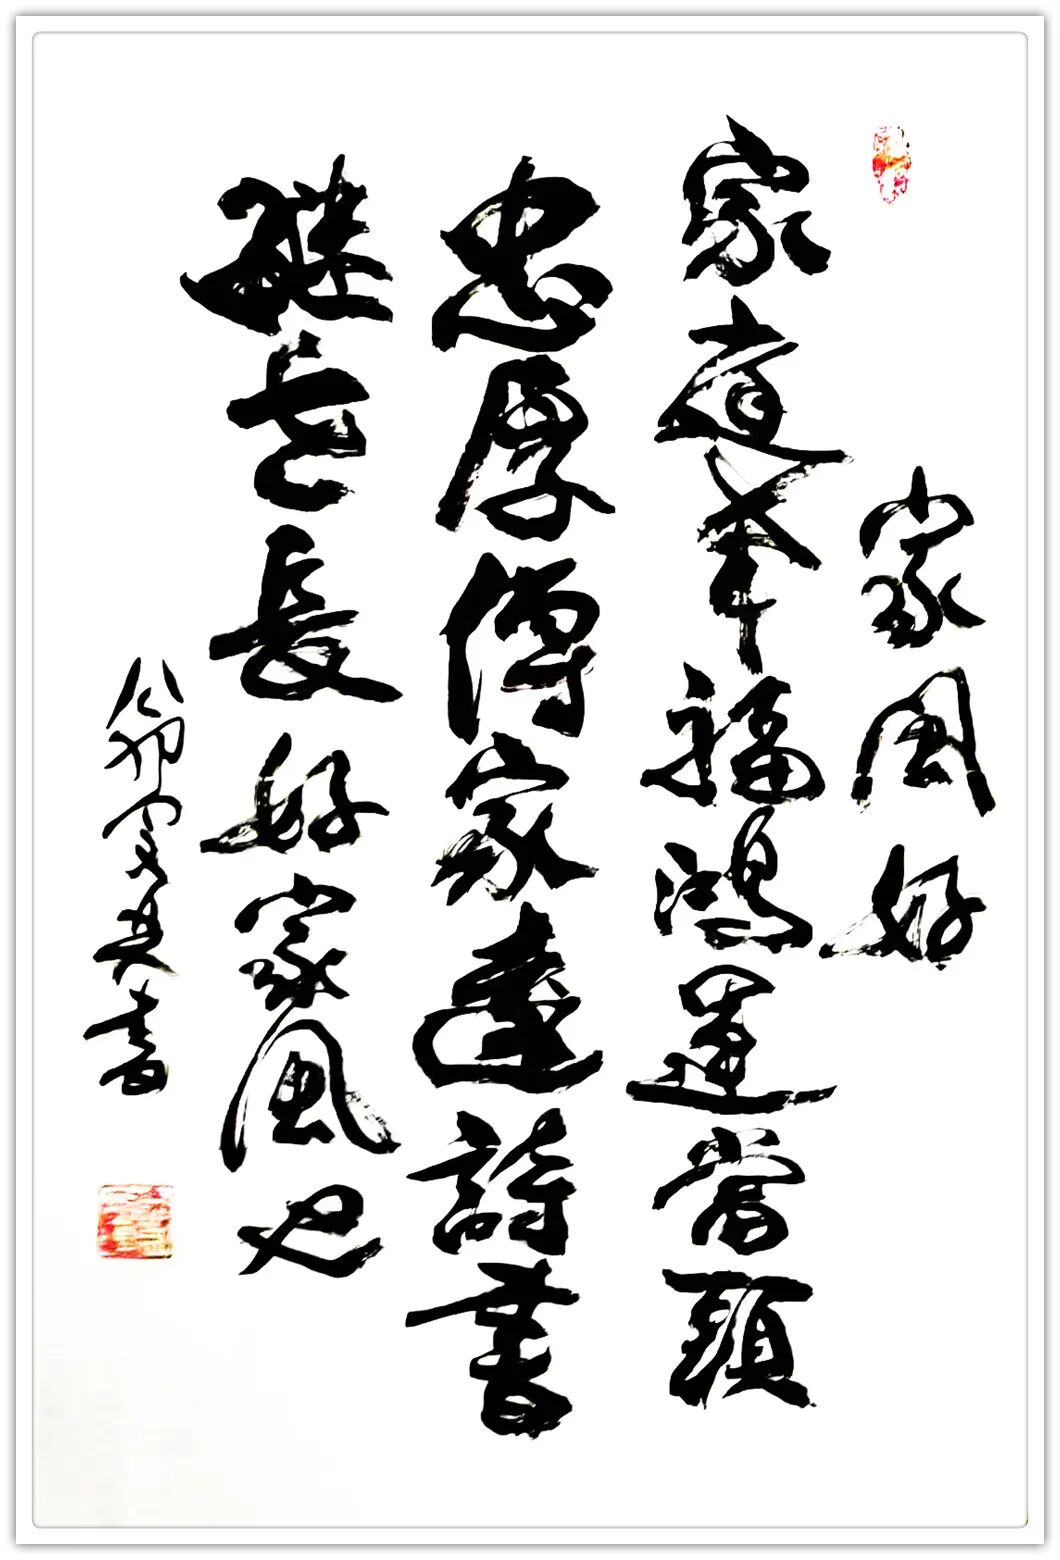 家風好
家道幸福鴻運當頭
忠厚傳家遠詩書
継世長好家風也
癸卯書